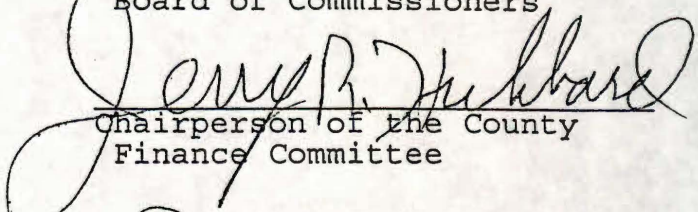 Board of Commissioners
Jerry R. Hubbard
Chairperson of the County
Finance Committee